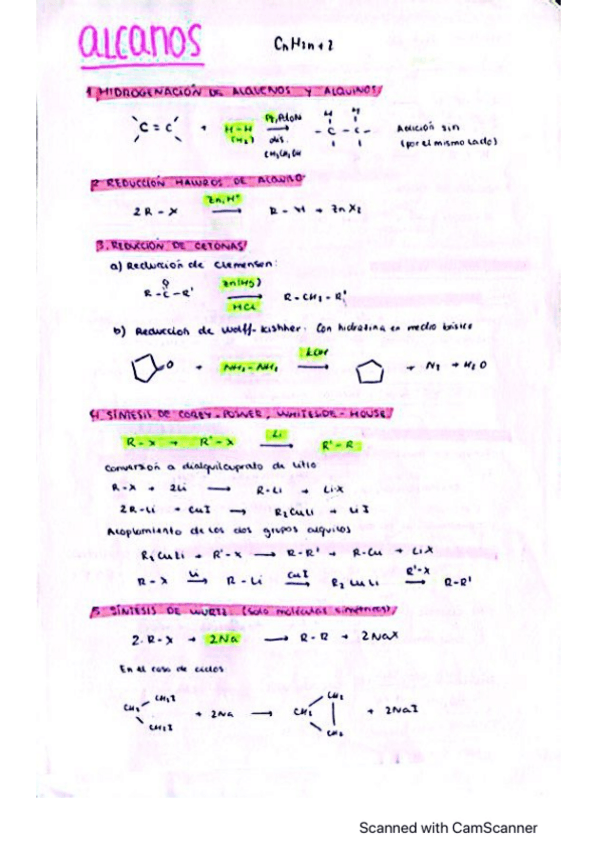 alcanos CnH2n+2
1. HIDROGENACIÓN DE ALQUENOS Y ALQUINOS
C = C + H-H → - C - C - Adición sin
(H2) dis. (por el mismo lado)
2. REDUCCIÓN HALUROS DE ALQUILO
Zn, H+
2R - X → R - H + ZnX2
3. REDUCCIÓN DE CETONAS
a) Reducción de Clemensen:
O Zn(Hg)
R - C - R' → R - CH2 - R'
HCl
b) Reducción de Wolff-Kishher: Con hidrazina en medio básico
KOH
O + NH2 - NH2 → + N2 + H2O
4. SÍNTESIS DE COREY-POWER, WHITESIDE-HOUSE
R - X + R' - X Li → R' - R
Conversión a dialquilcuprato de litio
R - X + 2Li → R - Li + LiX
2R - Li + CuI → R2CuLi + LiI
Acoplamiento de los dos grupos alquilos
R2CuLi + R' - X → R - R' + R - Cu + LiX
R - X Li → R - Li CuI → R2CuLi R'-X → R-R'
5. SÍNTESIS DE WURTZ: (solo moléculas simétricas)
2. R - X + 2Na → R - R + 2NaX
En el caso de ciclos
CH2I CH2
CH2 + 2Na → CH2 + 2NaI
CH2I CH2
Scanned with CamScanner